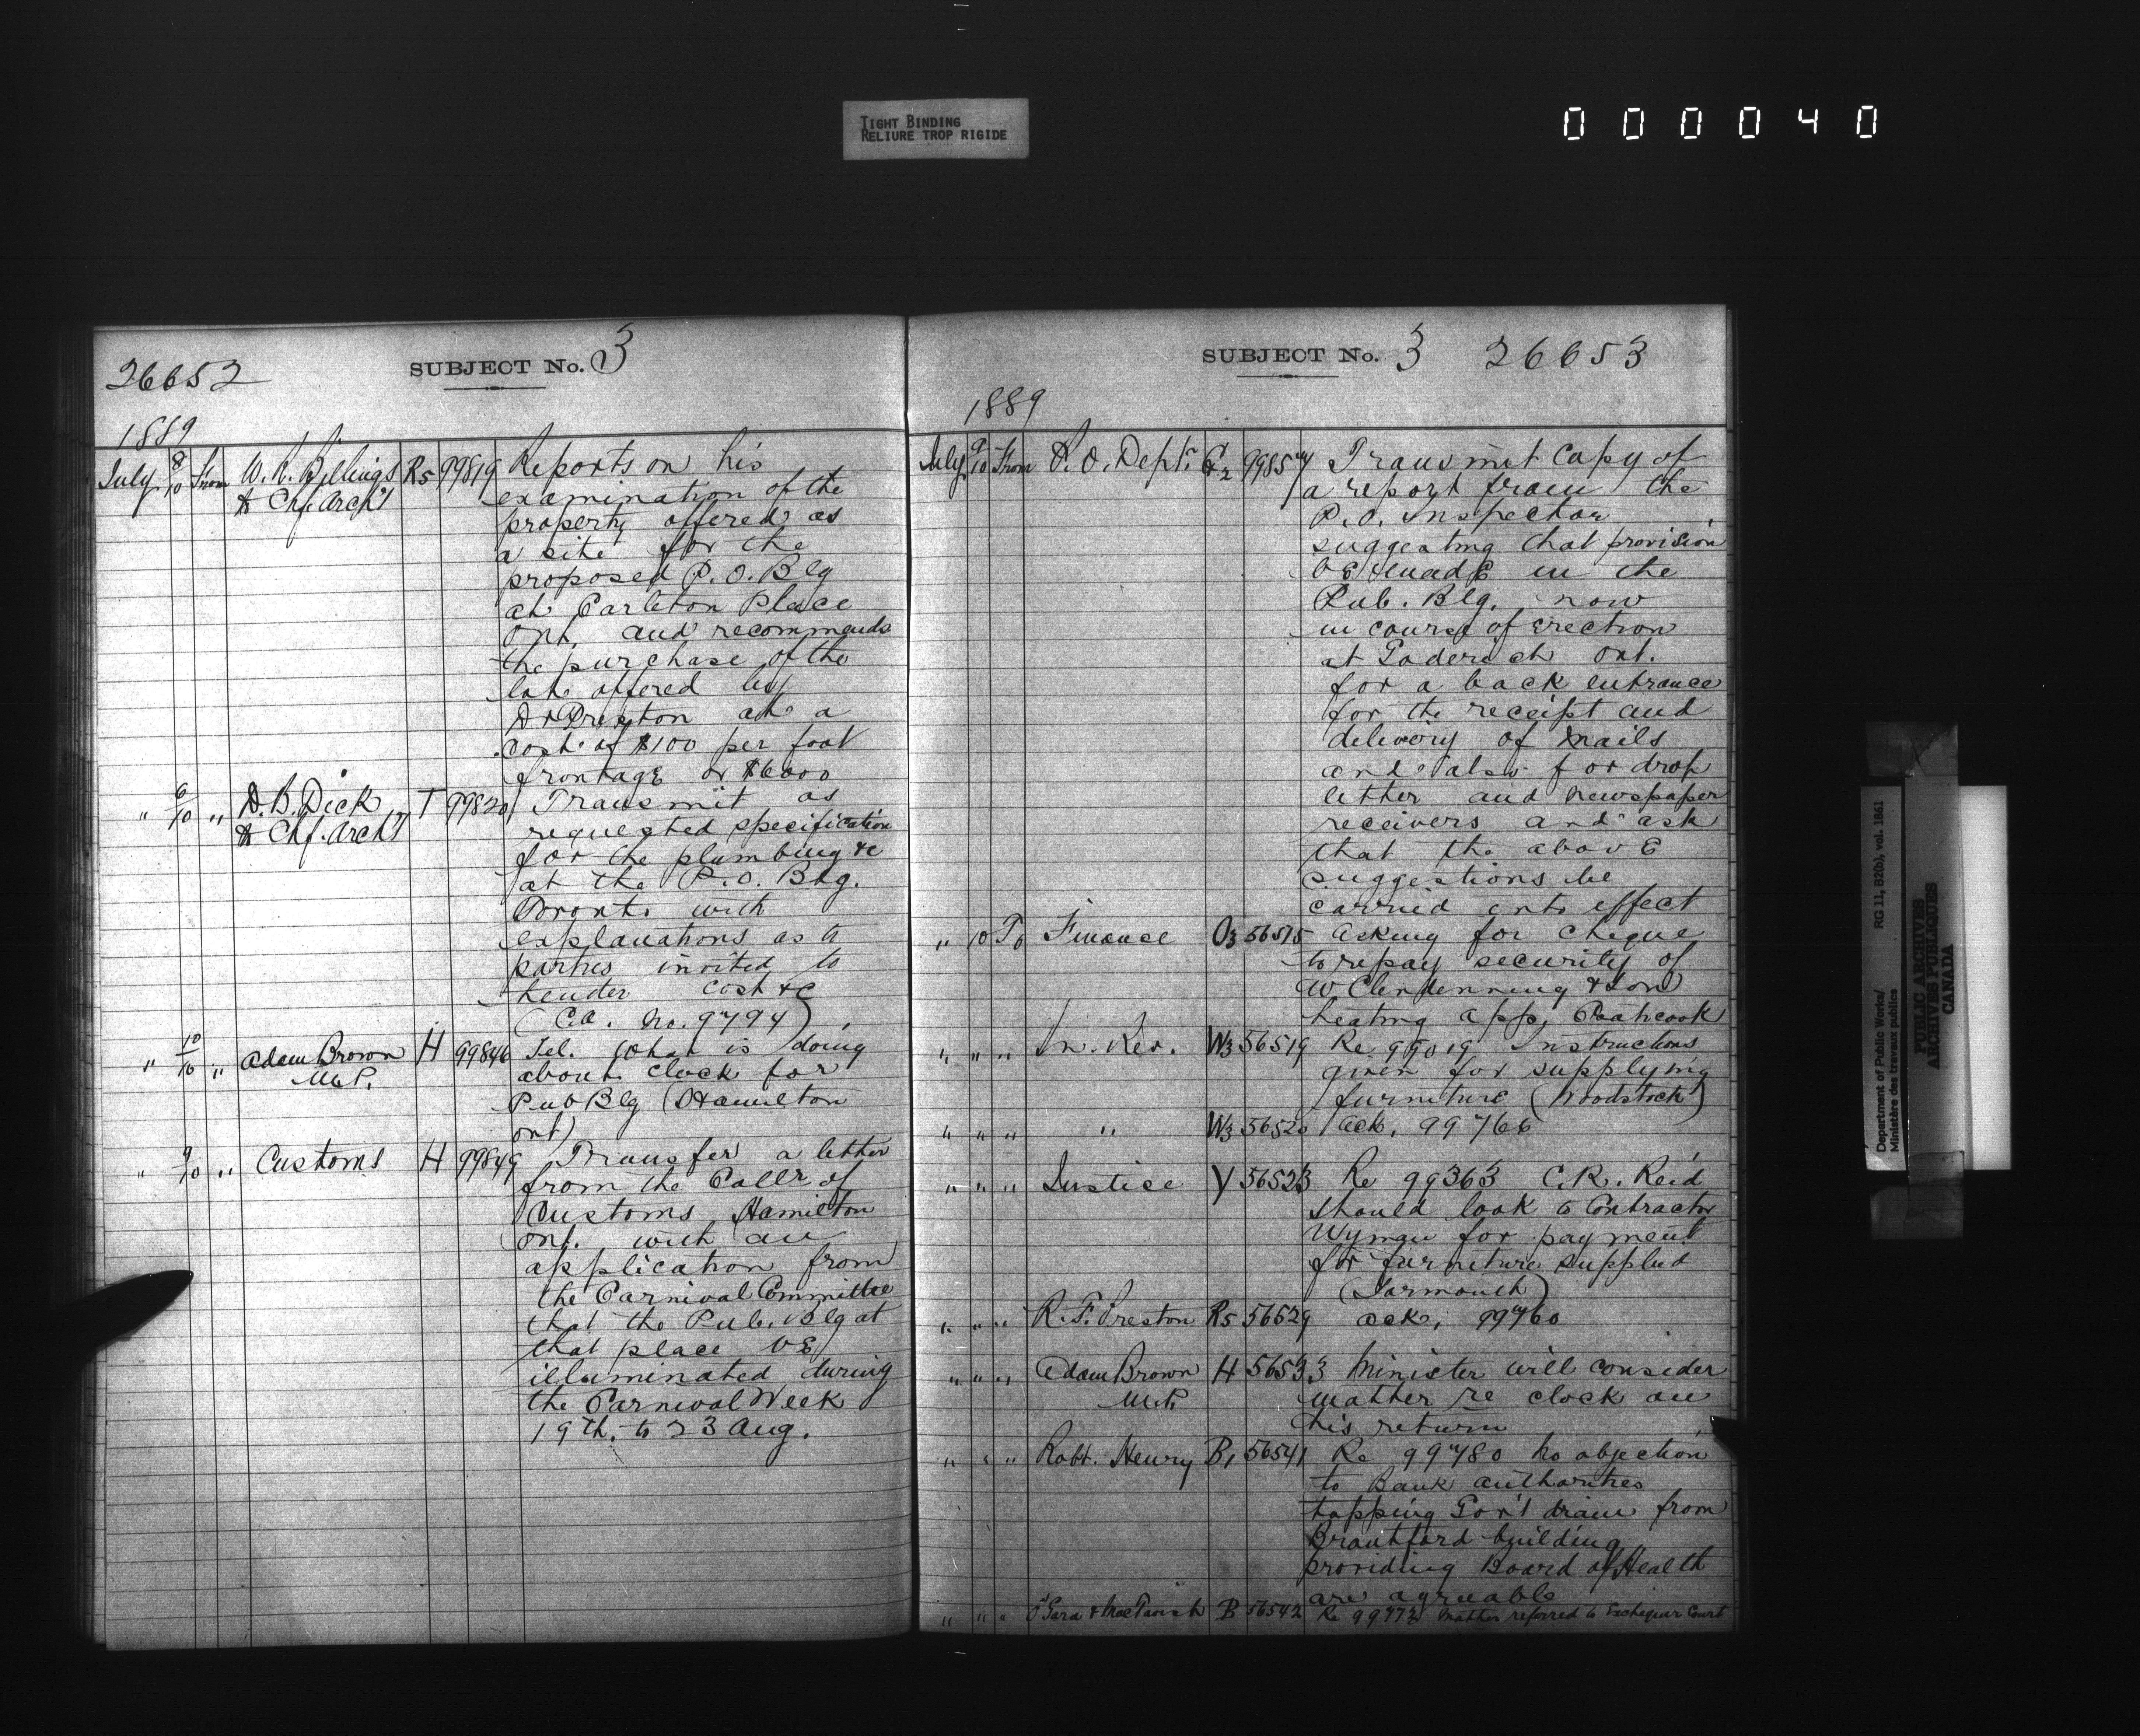 TIGHT BINDING
RELIURE TROP RIGIDE
000040
26652 SUBJECT No. 3
1889
July 8/10 From W. R. Billings R5 99819 Reports on his
& Chf. Arch't examination of the
property offered as
a site for the
proposed P. O. Blg
at Carleton Place
Ont. and recommends
the purchase of the
lots offered by
Dr Preston at a
cost of $100 per foot
frontage or $6000
" 6/10 " D. B. Dick T 99820 Transmit as
& Chf. Arch't requested specification
for the plumbing &c
at the P. O. Blg.
Toronto with
explanations as to
parties invited to
tender cost &c
(C.A. No. 9794)
" 10/10 " Adam Brown H 99846 Tel. What is doing
M.P. about clock for
Pub Blg (Hamilton
Ont)
" 9/10 " Customs H 99849 Transfer a letter
from the Collr of
Customs Hamilton
Ont. with an
application from
the Carnival Committee
that the Pub. Blg at
that place be
illuminated during
the Carnival Week
19th. to 23 Aug.
SUBJECT No. 3 26653
1889
July 9/10 From P. O. Dept. G2 99854 Transmit Copy of
a report from the
P. O. Inspector
suggesting that provision
be made in the
Pub. Blg. now
in course of erection
at Goderich Ont.
for a back entrance
for the receipt and
delivery of mails
and also for drop
letter and newspaper
receivers and ask
that the above
suggestions be
carried into effect
" 10 To Finance O3 56515 Asking for cheque
to repay security of
W Clendenning & Son
heating app. Coaticook
" " " In. Rev. W3 56519 Re 99019 Instructions
given for supplying
furniture (Woodstock)
" " " " W3 56520 Ack. 99766
" " " Justice Y 56523 Re 99363 C. R. Reid
should look to Contractor
Wyman for payment
for furniture supplied
(Yarmouth)
" " " R. F. Preston R5 56529 Ack. 99760
" " " Adam Brown H 56533 Minister will consider
M.P. matter re clock on
his return
" " " Robt. Henry B1 56541 Re 99780 No objection
to Bank authorities
tapping Gov't drain from
Brantford building
providing Board of Health
are agreeable
" " " O'Gara & MacTavish B 56542 Re 99772 Matter referred to Exchequer Court
Department of Public Works/ RG 11, B2(b), vol. 1861
Ministère des travaux publics
PUBLIC ARCHIVES
ARCHIVES PUBLIQUES
CANADA